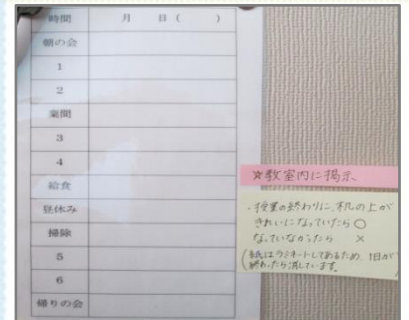 時間 月 日( )
朝の会
1
2
業間
3
4
給食
昼休み
掃除
5
6
帰りの会
☆教室内に掲示
・授業の終わりに、机の上が
きれいになっていたら ○
なっていなかったら ×
(紙はラミネートしてあるため、1日が
終わったら消しています。)